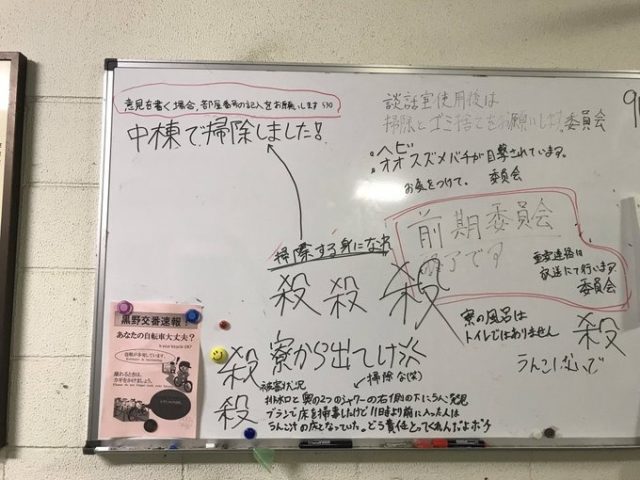 意見を書く場合、部屋番号の記入をお願いします 530
中棟で掃除しました!
談話室使用後は
掃除とゴミ捨てをお願いします!委員会
・ヘビ
・オオスズメバチが目撃されています。
お気をつけて。 委員会
前期委員会
終了です
重要連絡は
放送にて行います。
委員会
掃除する身になれ
殺 殺 殺
寮の風呂は
トイレではありません
うんこしないで
殺
殺
殺
寮から出てけ
掃除な(笑)
被害状況
排水口と奥の2つのシャワーの右側の下にうんこ発見
ブラシで床を掃除したけど11日時より前に入った人は
うんこ汁の床となっていた。どう責任とってくれんだよボケ
黒野交番速報!
あなたの自転車大丈夫?
自転車が多発しています。
離れるときは、
カギをかけましょう。